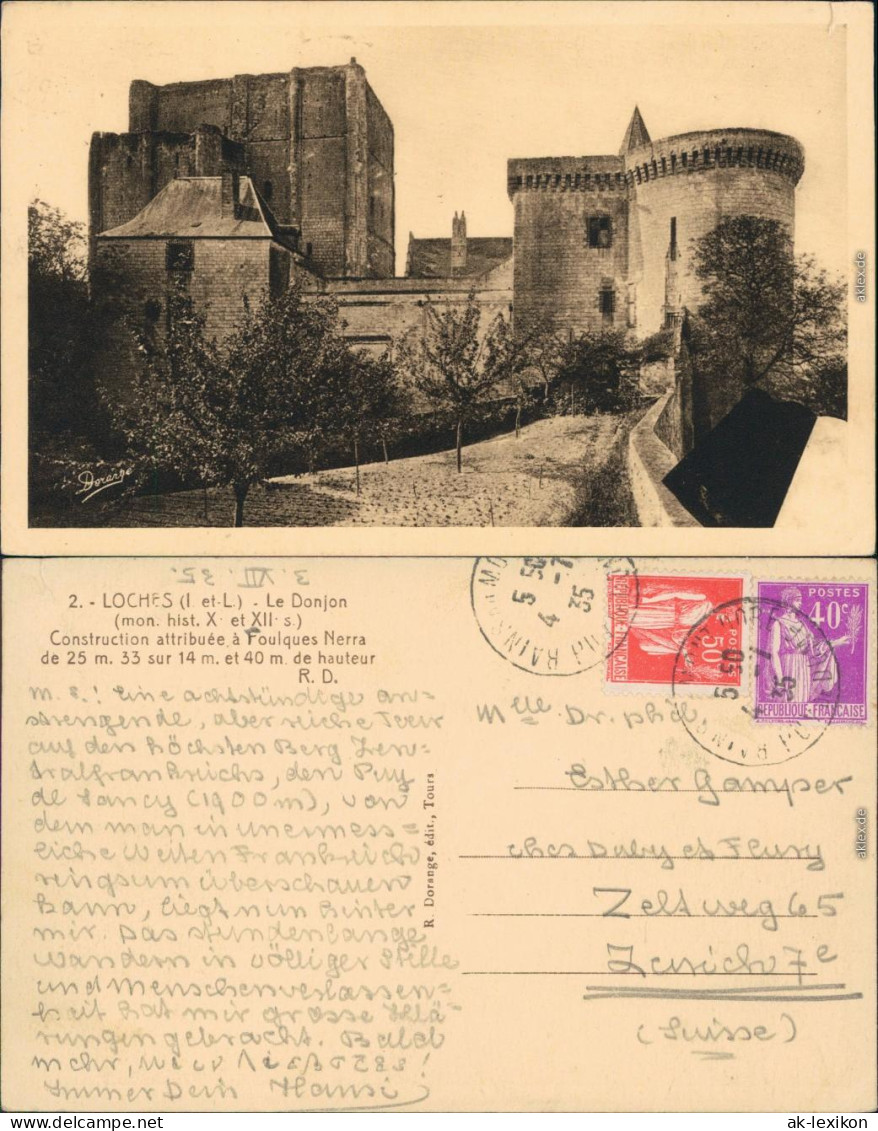 Dorange
akleix.de
3. VII. 35.
2. - LOCHES (I. et-L.) - Le Donjon
(mon. hist. X· et XII· s.)
Construction attribuée à Foulques Nerra
de 25 m. 33 sur 14 m. et 40 m. de hauteur
R. D.
M. E.! Eine achtstündige an=
strengende, aber reiche Tour
auf den höchsten Berg Zen=
tralfrankreichs, den Puy
de Sancy (1900 m), von
dem man in unermess=
liche Weiten Frankreich
ringsum überschauen
kann, liegt nun hinter
mir. Das stundenlange
Wandern in völliger Stille
und Menschenverlassen=
heit hat mir grosse Klä=
rungen gebracht. Bald
mehr,
Immer Dein Hansi
R. Dorange, édit., Tours
5 50
4 -7
35
50c
POSTES
RÉPUBLIQUE FRANÇAISE
POSTES
40c
REPUBLIQUE-FRANÇAISE
5 50
35
Melle Dr. phil.
Esther Gamper
chez Duby et Fleury
Zeltweg 65
Zurich 7e
(Suisse)
aklex.de
ak-lexikon